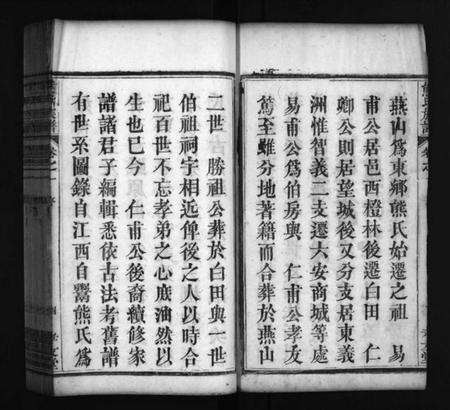 燕山爲東鄉熊氏始遷之祖 易
甫公居邑西橙林後遷白田 仁
卿公則居望城後又分支居東義
洲惟智義二支遷大安商城等處
易甫公爲伯房與 仁甫公孝友
篤至雖分地著籍而合葬於燕山
二世 勝祖公葬於白田與一世
伯祖祠宇相近俾後之人以時合
祀百世不忘孝弟之心庶油然以
生也已今 仁甫公後裔續修家
譜諸君子編輯悉依古法考舊譜
有世系圖錄自江西自鬻熊氏爲